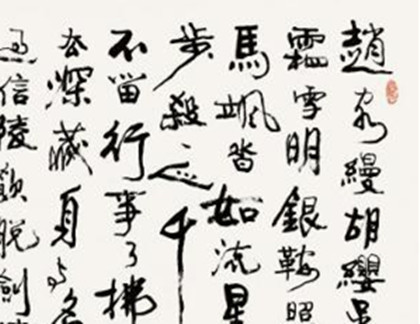 趙客縵胡纓吳
霜雪明銀鞍照
馬颯沓如流星
步殺一人千
不留行事了拂
去深藏身与名
過信陵飲脫劍